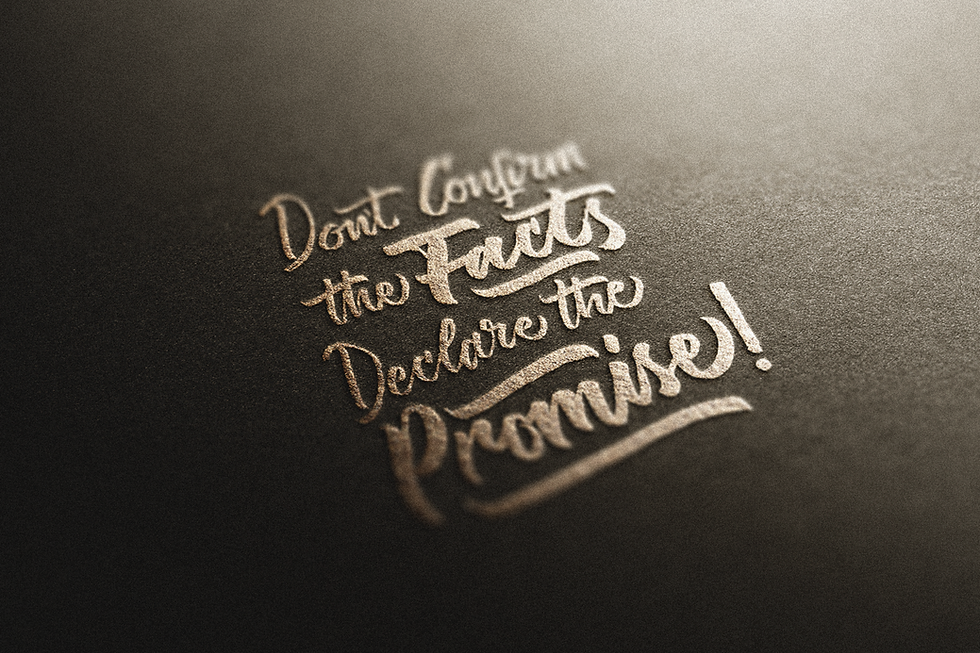 Dont Confirm
the Facts
Declare the
Promise!